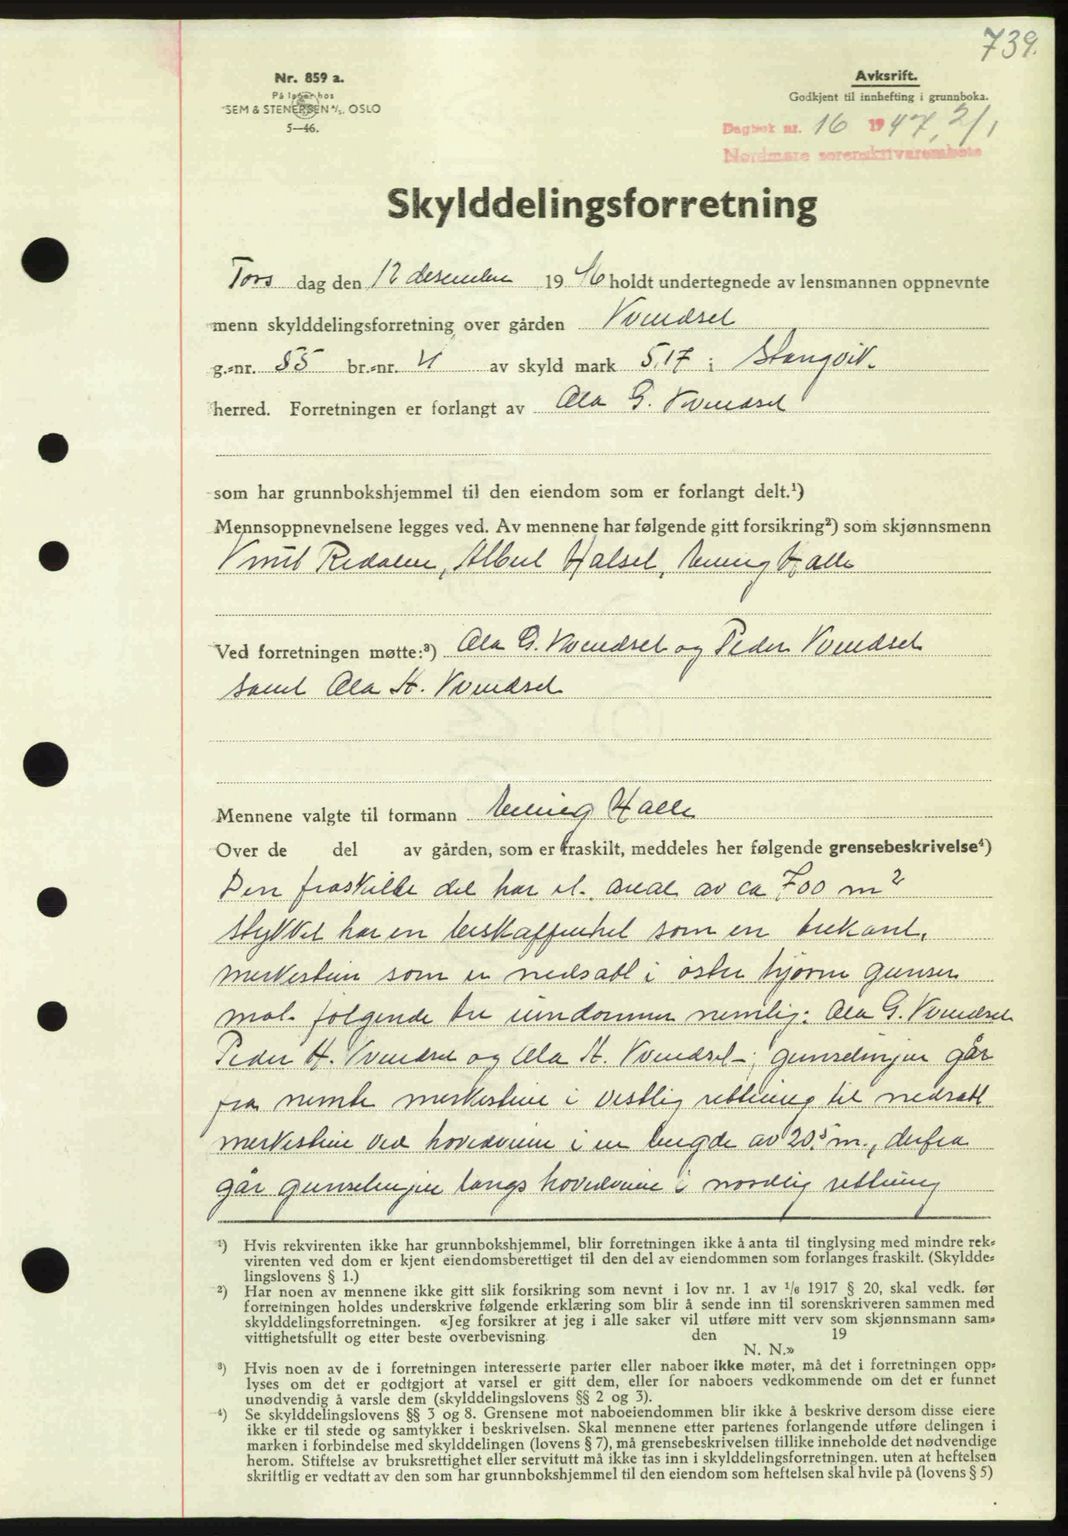 739.
Nr. 859 a.
På lager hos
SEM & STENERSEN A/S. OSLO
5—46.
Avksrift.
Godkjent til innhefting i grunnboka.
Dagbok nr. 16 1947, 2/1
Nordmøre sorenskriverembete
Skylddelingsforretning
Tors dag den 12 desember 1946 holdt undertegnede av lensmannen oppnevnte
menn skylddelingsforretning over gården Kvendset
g.-nr. 55 br.-nr. 4 av skyld mark 5,17 i Stangvik.
herred. Forretningen er forlangt av Ola G. Kvendset
som har grunnbokshjemmel til den eiendom som er forlangt delt.¹)
Mennsoppnevnelsene legges ved. Av mennene har følgende gitt forsikring²) som skjønnsmenn
Knut Redalen, Albert Halset, Halle
Ved forretningen møtte:³) Ola G. Kvendset og Peder Kvendset
samt Ola H. Kvendset
Mennene valgte til formann Halle
Over de del av gården, som er fraskilt, meddeles her følgende grensebeskrivelse⁴)
Den fraskilte del har et areal av ca 700 m²
stykket har en beskaffenhet som en trekant.
merkestein som er nedsatt i østre hjørne grenser
mot følgende tre eiendommer nemlig: Ola G. Kvendset
Peder H. Kvendset og Ola H. Kvendset; grenselinjen går
fra nevnte merkestein i vestlig retning til nedsatt
merkestein ved hovedveien i en lengde av 20,5 m., derfra
går grenselinjen langs hovedveien i nordlig retning
¹) Hvis rekvirenten ikke har grunnbokshjemmel, blir forretningen ikke å anta til tinglysing med mindre rek-
virenten ved dom er kjent eiendomsberettiget til den del av eiendommen som forlanges fraskilt. (Skyldde-
lingslovens § 1.)
²) Har noen av mennene ikke gitt slik forsikring som nevnt i lov nr. 1 av 1/6 1917 § 20, skal vedk. før
forretningen holdes underskrive følgende erklæring som blir å sende inn til sorenskriveren sammen med
skylddelingsforretningen. «Jeg forsikrer at jeg i alle saker vil utføre mitt verv som skjønnsmann sam-
vittighetsfullt og etter beste overbevisning. den 19
N. N.»
³) Hvis noen av de i forretningen interesserte parter eller naboer ikke møter, må det i forretningen opp-
lyses om det er godtgjort at varsel er gitt dem, eller for naboers vedkommende om det er funnet
unødvendig å varsle dem (skylddelingslovens §§ 2 og 3).
⁴) Se skylddelingslovens §§ 3 og 8. Grensene mot naboeiendommen blir ikke å beskrive dersom disse eiere
ikke er til stede og samtykker i beskrivelsen. Skal mennene etter partenes forlangende utføre delingen i
marken i forbindelse med skylddelingen (lovens § 7), må grensebeskrivelsen tillike inneholde det nødvendige
herom. Stiftelse av bruksrettighet eller servitutt må ikke tas inn i skylddelingsforretningen. uten at heftelsen
skriftlig er vedtatt av den som har grunnbokshjemmel til den eiendom som heftelsen skal hvile på (lovens § 5)